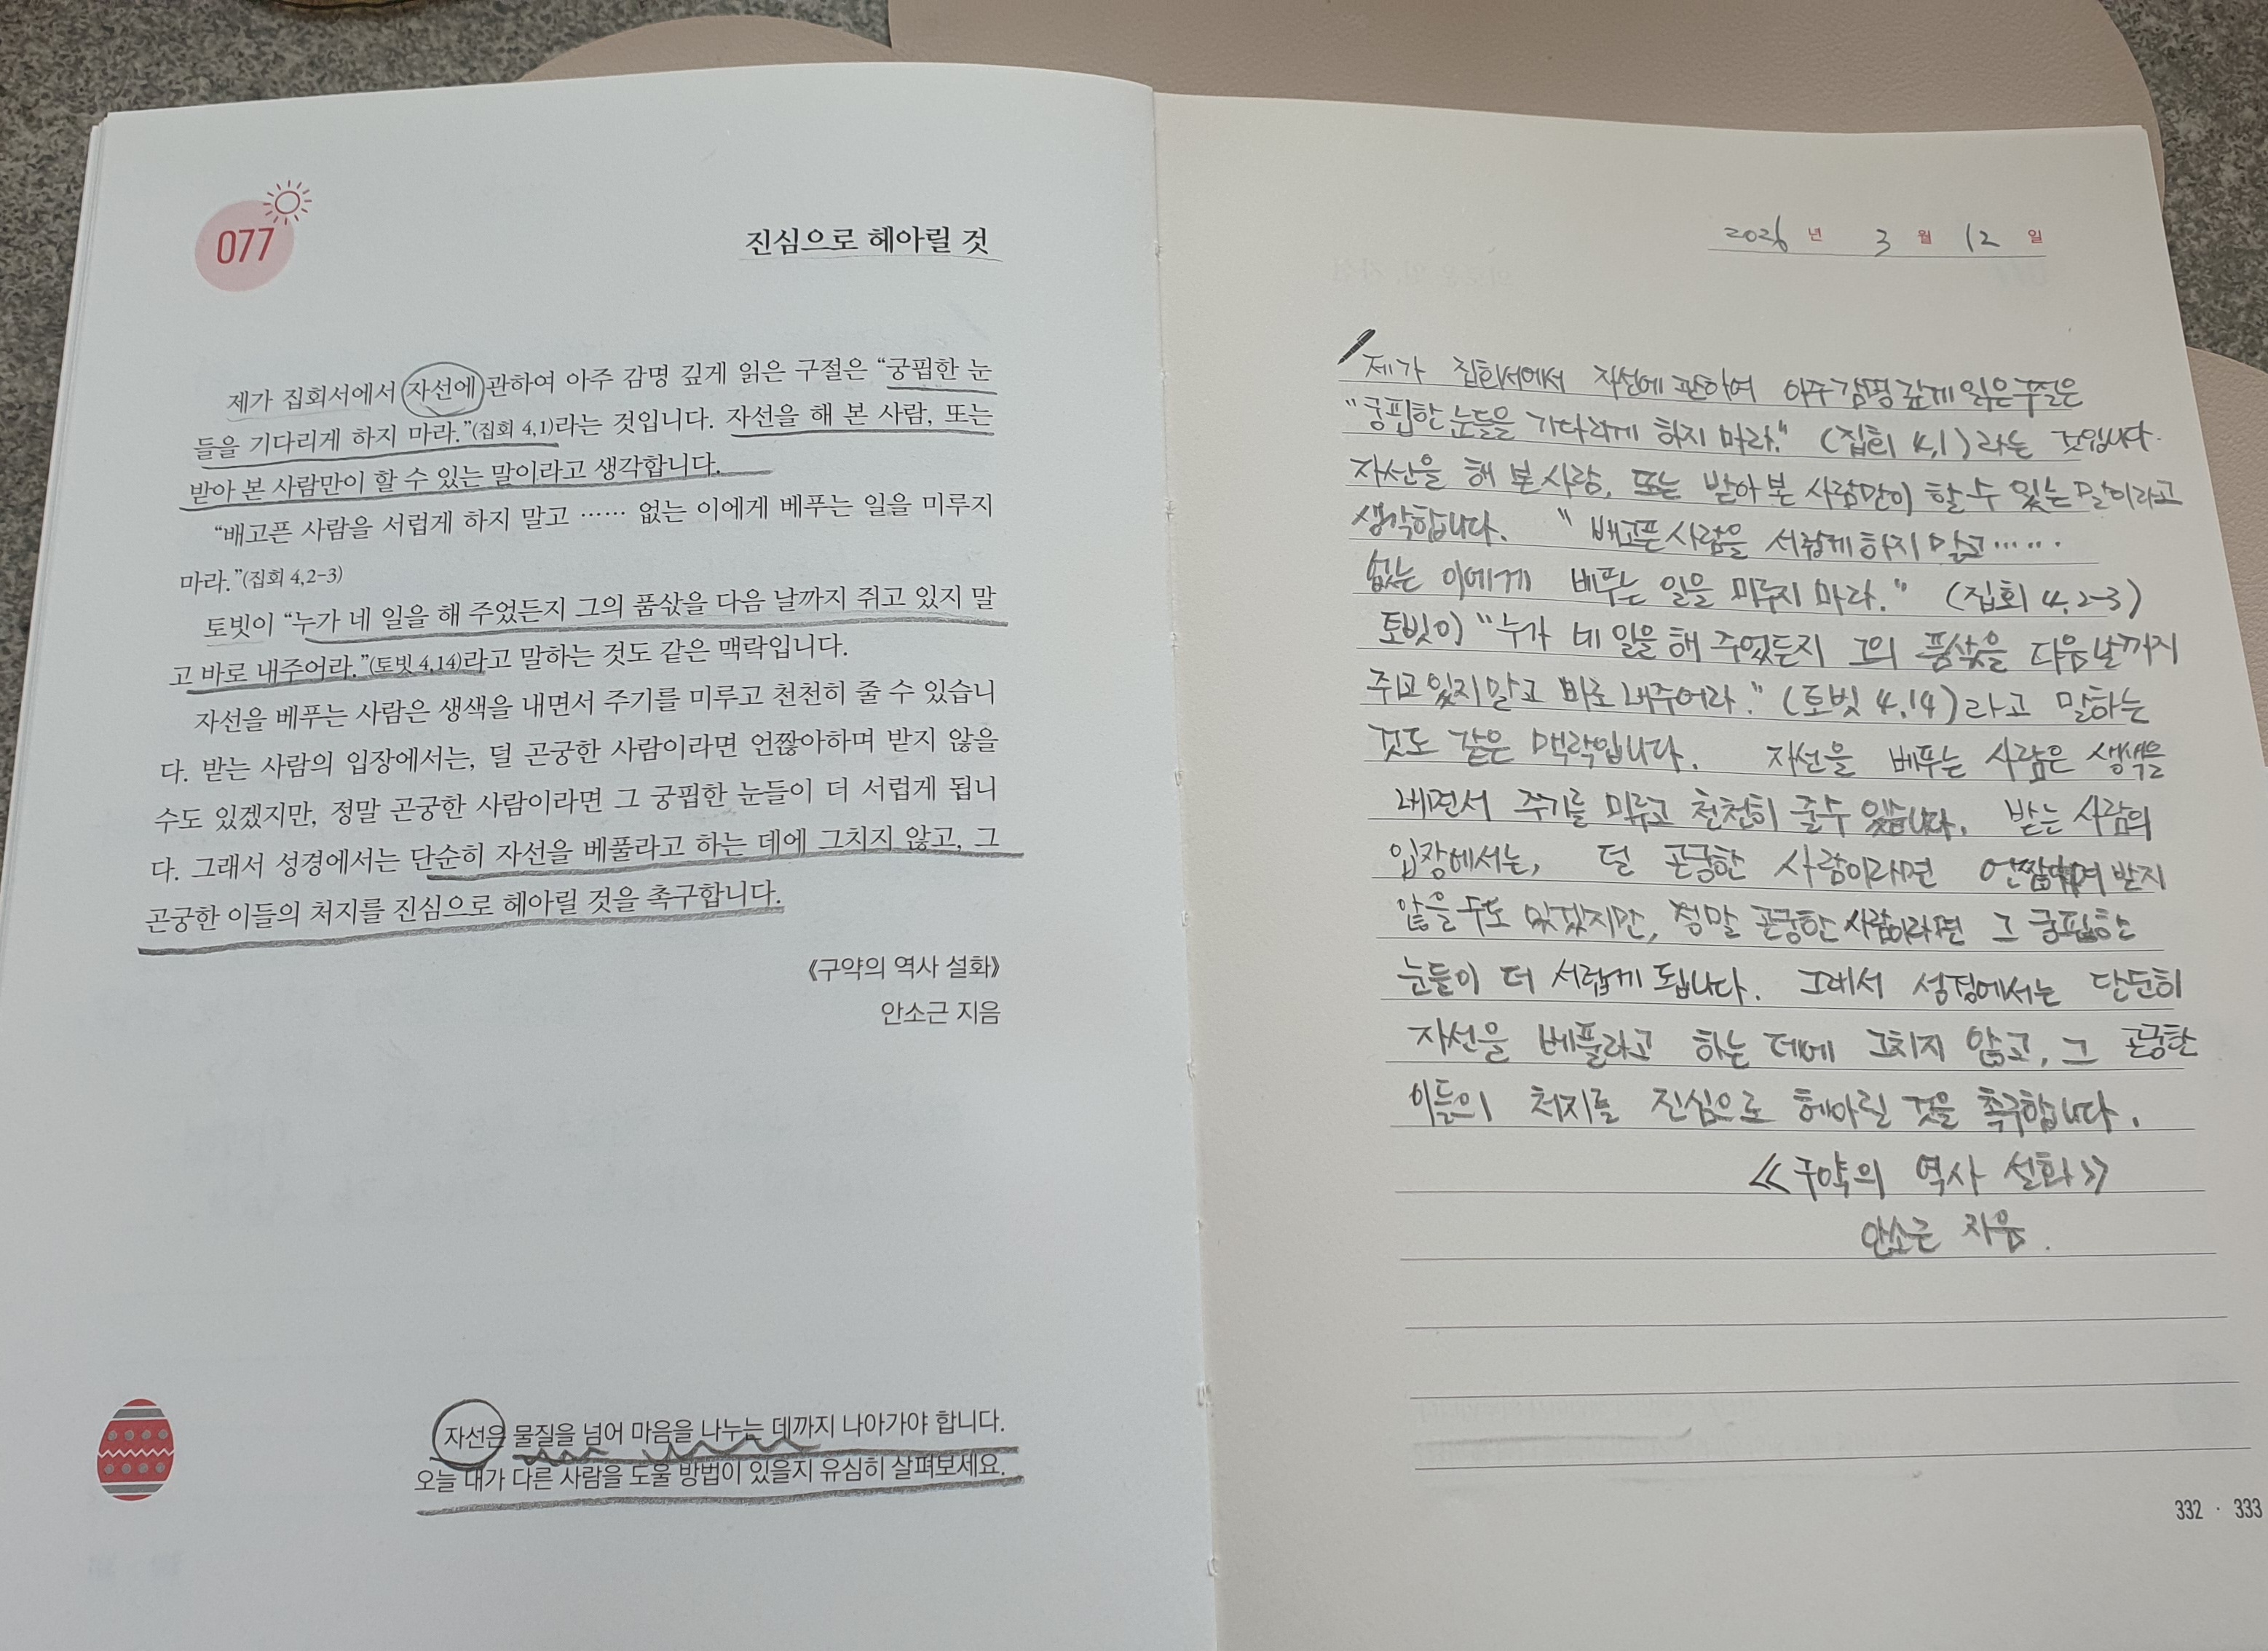 077
진심으로 헤아릴 것
제가 집회서에서 자선에 관하여 아주 감명 깊게 읽은 구절은 “궁핍한 눈
들을 기다리게 하지 마라.”(집회 4,1)라는 것입니다. 자선을 해 본 사람, 또는
받아 본 사람만이 할 수 있는 말이라고 생각합니다.
“배고픈 사람을 서럽게 하지 말고 …… 없는 이에게 베푸는 일을 미루지
마라.”(집회 4,2-3)
토빗이 “누가 네 일을 해 주었든지 그의 품삯을 다음 날까지 쥐고 있지 말
고 바로 내주어라.”(토빗 4,14)라고 말하는 것도 같은 맥락입니다.
자선을 베푸는 사람은 생색을 내면서 주기를 미루고 천천히 줄 수 있습니
다. 받는 사람의 입장에서는, 덜 곤궁한 사람이라면 언짢아하며 받지 않을
수도 있겠지만, 정말 곤궁한 사람이라면 그 궁핍한 눈들이 더 서럽게 됩니
다. 그래서 성경에서는 단순히 자선을 베풀라고 하는 데에 그치지 않고, 그
곤궁한 이들의 처지를 진심으로 헤아릴 것을 촉구합니다.
《구약의 역사 설화》
안소근 지음
자선은 물질을 넘어 마음을 나누는 데까지 나아가야 합니다.
오늘 내가 다른 사람을 도울 방법이 있을지 유심히 살펴보세요.
2026 년 3 월 12 일
제가 집회서에서 자선에 관하여 아주 감명 깊게 읽은 구절은
“궁핍한 눈들을 기다리게 하지 마라.” (집회 4,1) 라는 것입니다.
자선을 해 본 사람, 또는 받아 본 사람만이 할 수 있는 말이라고
생각합니다. “배고픈 사람을 서럽게 하지 말고 ……
없는 이에게 베푸는 일을 미루지 마라.” (집회 4,2-3)
토빗이 “누가 네 일을 해 주었든지 그의 품삯을 다음 날까지
쥐고 있지 말고 바로 내주어라.” (토빗 4,14) 라고 말하는
것도 같은 맥락입니다. 자선을 베푸는 사람은 생색을
내면서 주기를 미루고 천천히 줄 수 있습니다. 받는 사람의
입장에서는, 덜 곤궁한 사람이라면 받지
않을 수도 있겠지만, 정말 곤궁한 사람이라면 그 궁핍한
눈들이 더 서럽게 됩니다. 그래서 성경에서는 단순히
자선을 베풀라고 하는 데에 그치지 않고, 그 곤궁한
이들의 처지를 진심으로 헤아릴 것을 촉구합니다.
《구약의 역사 설화》
안소근 지음.
332 · 333